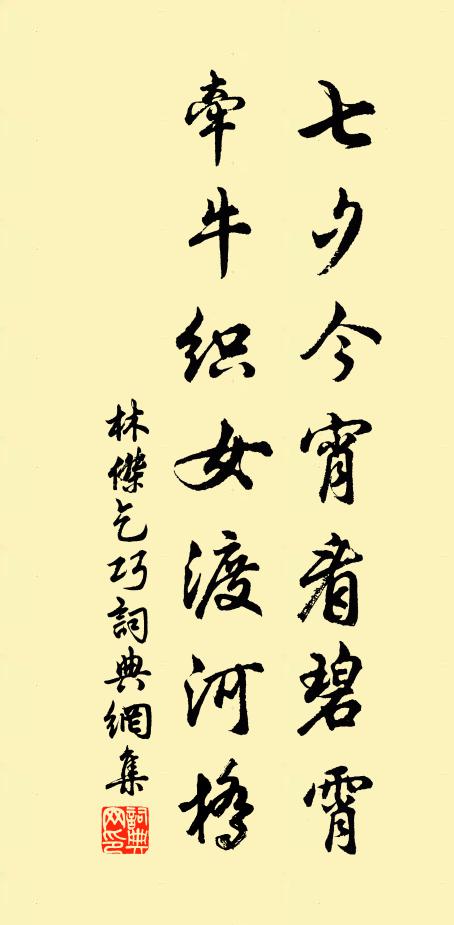 七夕今宵看碧霄
牽牛織女渡河橋
林傑乞巧詞典網集
詞典网印